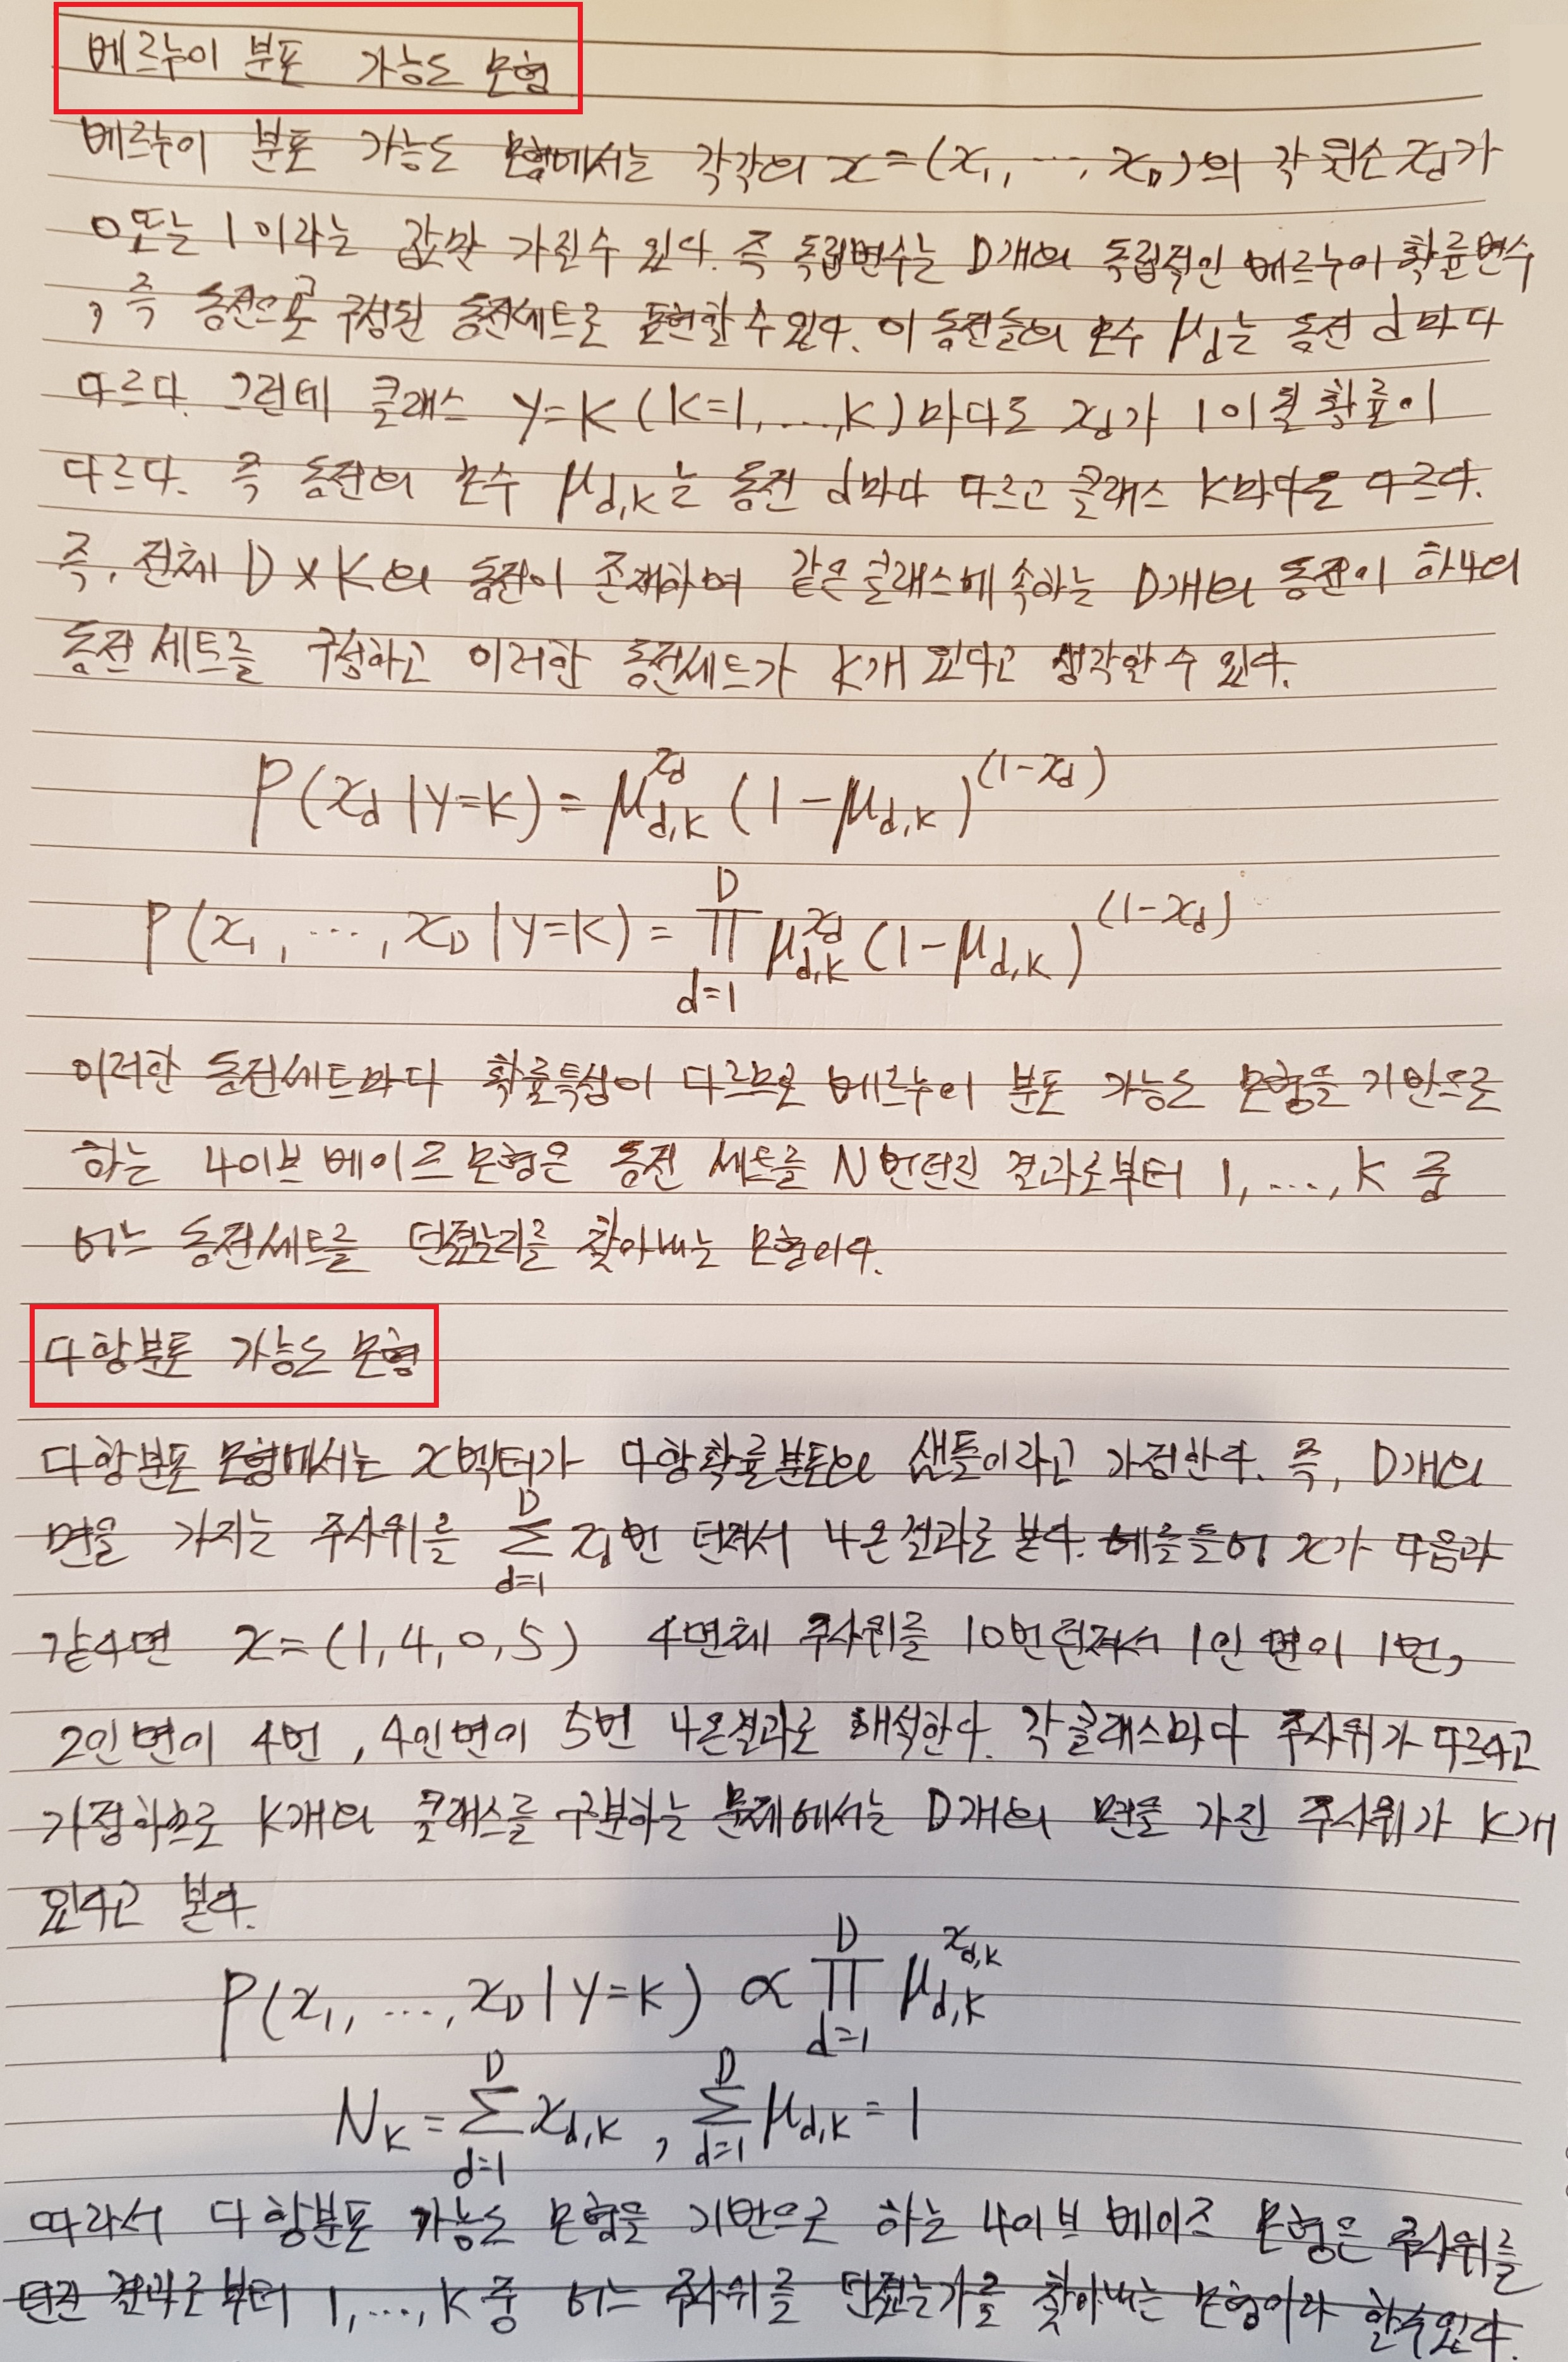 베르누이 분포 가능도 모형
베르누이 분포 가능도 모형에서는 각각의 x=(x₁, ⋯, x_D)의 각 원소 x_d가
0또는 1이라는 값만 가질수 있다. 즉 독립변수는 D개의 독립적인 베르누이 확률변수
, 즉 동전으로 구성된 동전세트로 표현할 수 있다. 이 동전들의 모수 μ_d는 동전 d마다
다르다. 그런데 클래스 y=k (k=1, ..., K)마다도 x_d가 1이 될 확률이
다르다. 즉 동전의 모수 μ_{d,k}는 동전 d마다 다르고 클래스 k마다도 다르다.
즉, 전체 D×K의 동전이 존재하며 같은 클래스에 속하는 D개의 동전이 하나의
동전 세트를 구성하고 이러한 동전세트가 K개 있다고 생각할 수 있다.
P(x_d | y=k) = μ_{d,k}^{x_d} (1-μ_{d,k})^{(1-x_d)}
P(x₁, ⋯, x_D | y=k) = ∏_{d=1}^{D} μ_{d,k}^{x_d} (1-μ_{d,k})^{(1-x_d)}
이러한 동전세트마다 확률특성이 다르므로 베르누이 분포 가능도 모형을 기반으로
하는 나이브 베이즈 모형은 동전 세트를 N번던진 결과로부터 1, ..., K 중
어느 동전세트를 던졌는지를 찾아내는 모형이다.
다항분포 가능도 모형
다항분포 모형에서는 x벡터가 다항확률분포의 샘플이라고 가정한다. 즉, D개의
면을 가지는 주사위를 ∑_{d=1}^{D} x_d번 던져서 나온결과로 본다. 예를들어 x가 다음과
같다면 x=(1,4,0,5) 4면체 주사위를 10번던져서 1인 면이 1번,
2인면이 4번, 4인면이 5번 나온결과로 해석한다. 각클래스마다 주사위가 다르다고
가정하므로 K개의 클래스를 구분하는 문제에서는 D개의 면을 가진 주사위가 K개
있다고 본다.
P(x₁, ..., x_D | y=k) ∝ ∏_{d=1}^{D} μ_{d,k}^{x_{d,k}}
N_k = ∑_{d=1}^{D} x_{d,k} , ∑_{d=1}^{D} μ_{d,k} = 1
따라서 다항분포 가능도 모형을 기반으로 하는 나이브 베이즈 모형은 주사위를
던진 결과로부터 1, ..., K 중 어느 주사위를 던졌는가를 찾아내는 모형이라 할수있다.